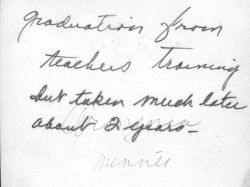 graduation from
teachers training
but taken much later
about 2 years-
Minnie